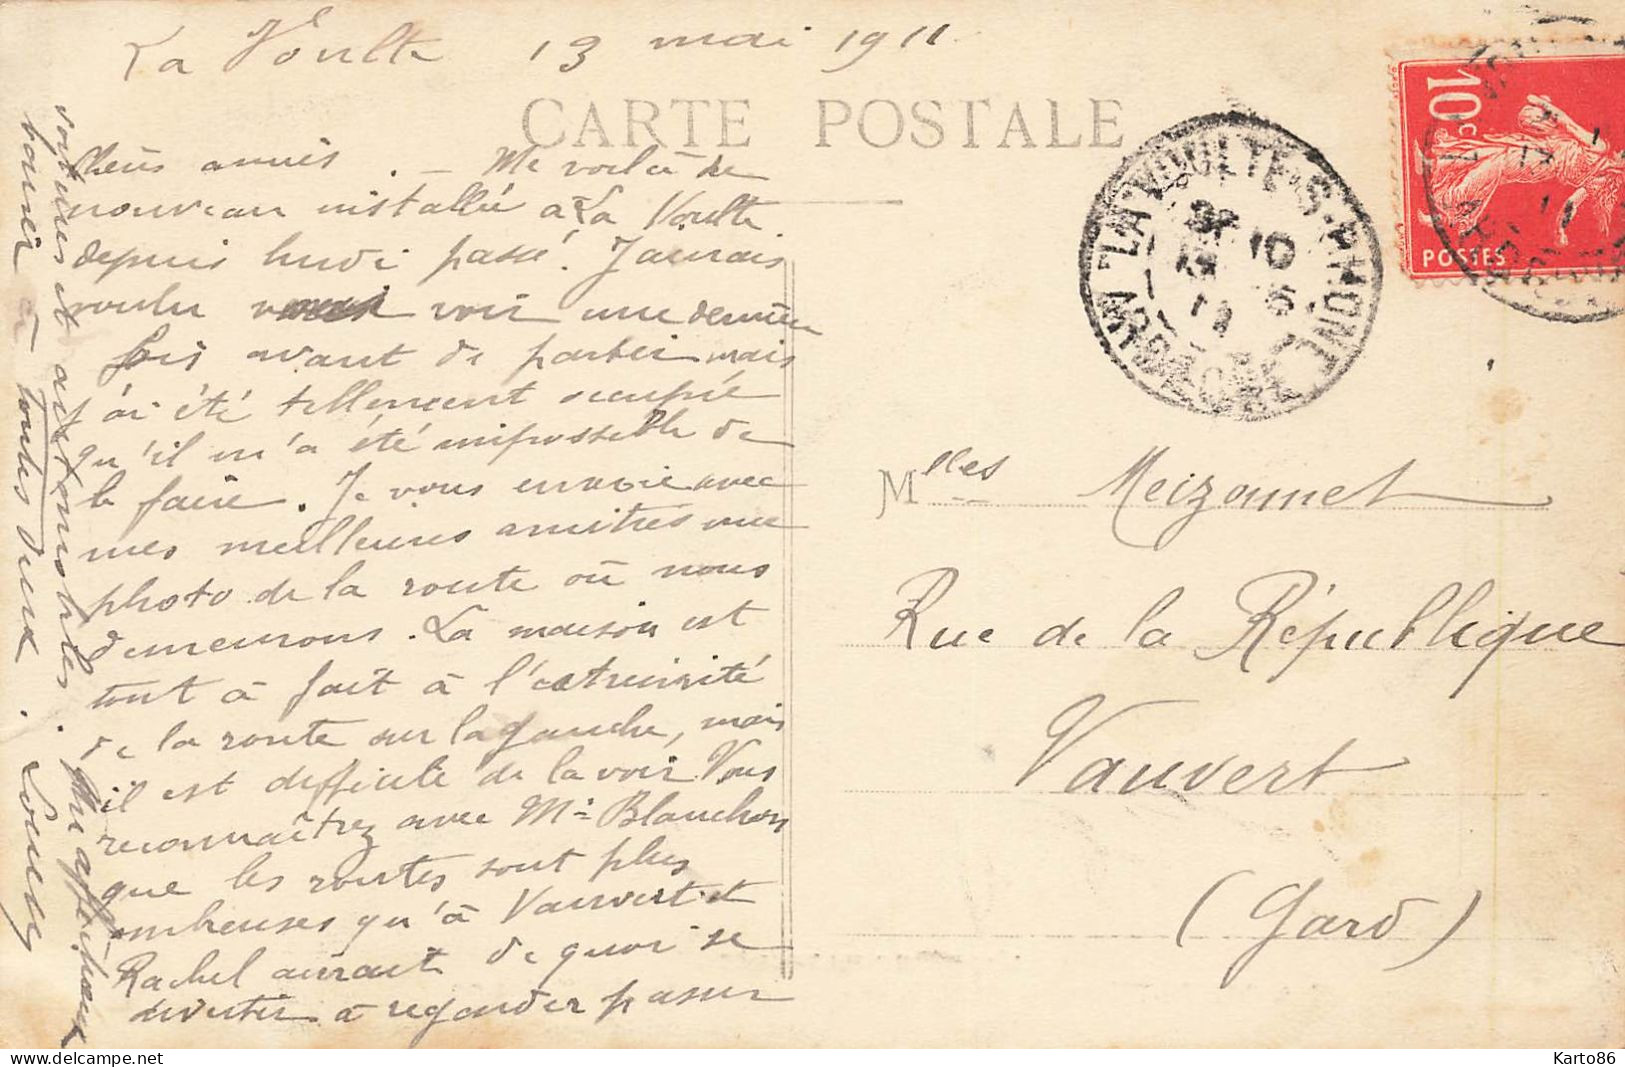 La Voulte 13 mai 1911
CARTE POSTALE
Chères amies. - Me voilà de
nouveau installée à La Voulte
depuis lundi passé. J'aurais
voulu voir une dernière
fois avant de partir mais
j'ai été tellement occupée
qu'il m'a été impossible de
le faire. Je vous envoie avec
mes meilleures amitiés une
photo de la route où nous
demeurons. La maison est
tout à fait à l'extrémité
de la route sur la gauche, mais
il est difficile de la voir. Vous
reconnaîtrez avec Me Blanchon
que les routes sont plus
ombreuses qu'à Vauvert et
Rachel aurait de quoi se
divertir à regarder passer
voitures et automobiles. Un affectueux
baiser à toutes deux. Loucy
10c
POSTES
LA VOULTE-S-RHONE
10
13 -5
11
Mlles Meizonnet
Rue de la République
Vauvert
(Gard)
Karto86
delcampe.net